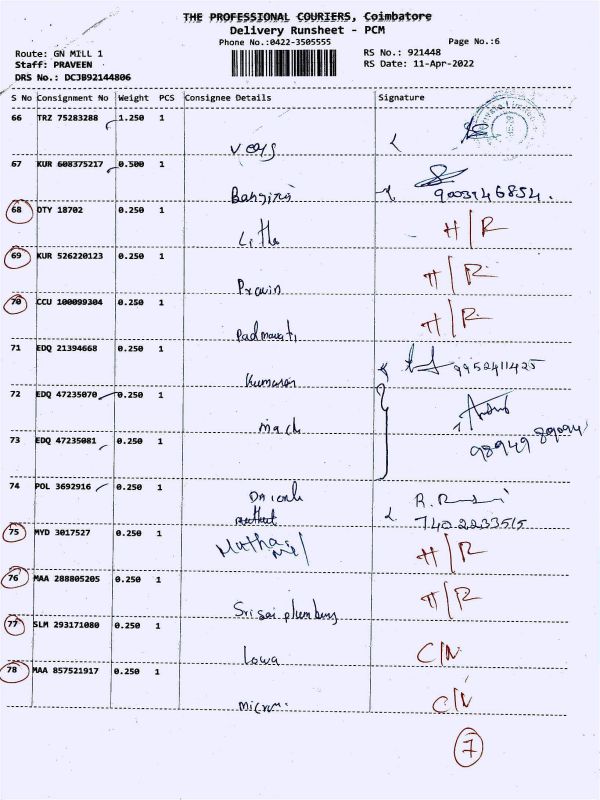 THE PROFESSIONAL COURIERS, Coimbatore
Delivery Runsheet - PCM
Phone No.:0422-3505555
Page No.:6
Route: GN MILL 1
RS No.: 921448
Staff: PRAVEEN
RS Date: 11-Apr-2022
DRS No.: DCJB92144806
S No Consignment No Weight PCS Consignee Details Signature
66 TRZ 75283288 1.250 1
67 KUR 608375217 0.500 1
9003146854.
68 OTY 18702 0.250 1
H/R
69 KUR 526220123 0.250 1
H/R
Pravin
70 CCU 100099304 0.250 1
H/R
Padmavati
71 EDQ 21394668 0.250 1
9952411425
Kumaran
72 EDQ 47235070 0.250 1
73 EDQ 47235081 0.250 1
74 POL 3692916 0.250 1
7402233515
75 MYD 3017527 0.250 1
H/R
76 MAA 288805205 0.250 1
H/R
Sri sai plumbing
77 SLM 293171080 0.250 1
Lowa
C/N
78 MAA 857521917 0.250 1
C/N
7